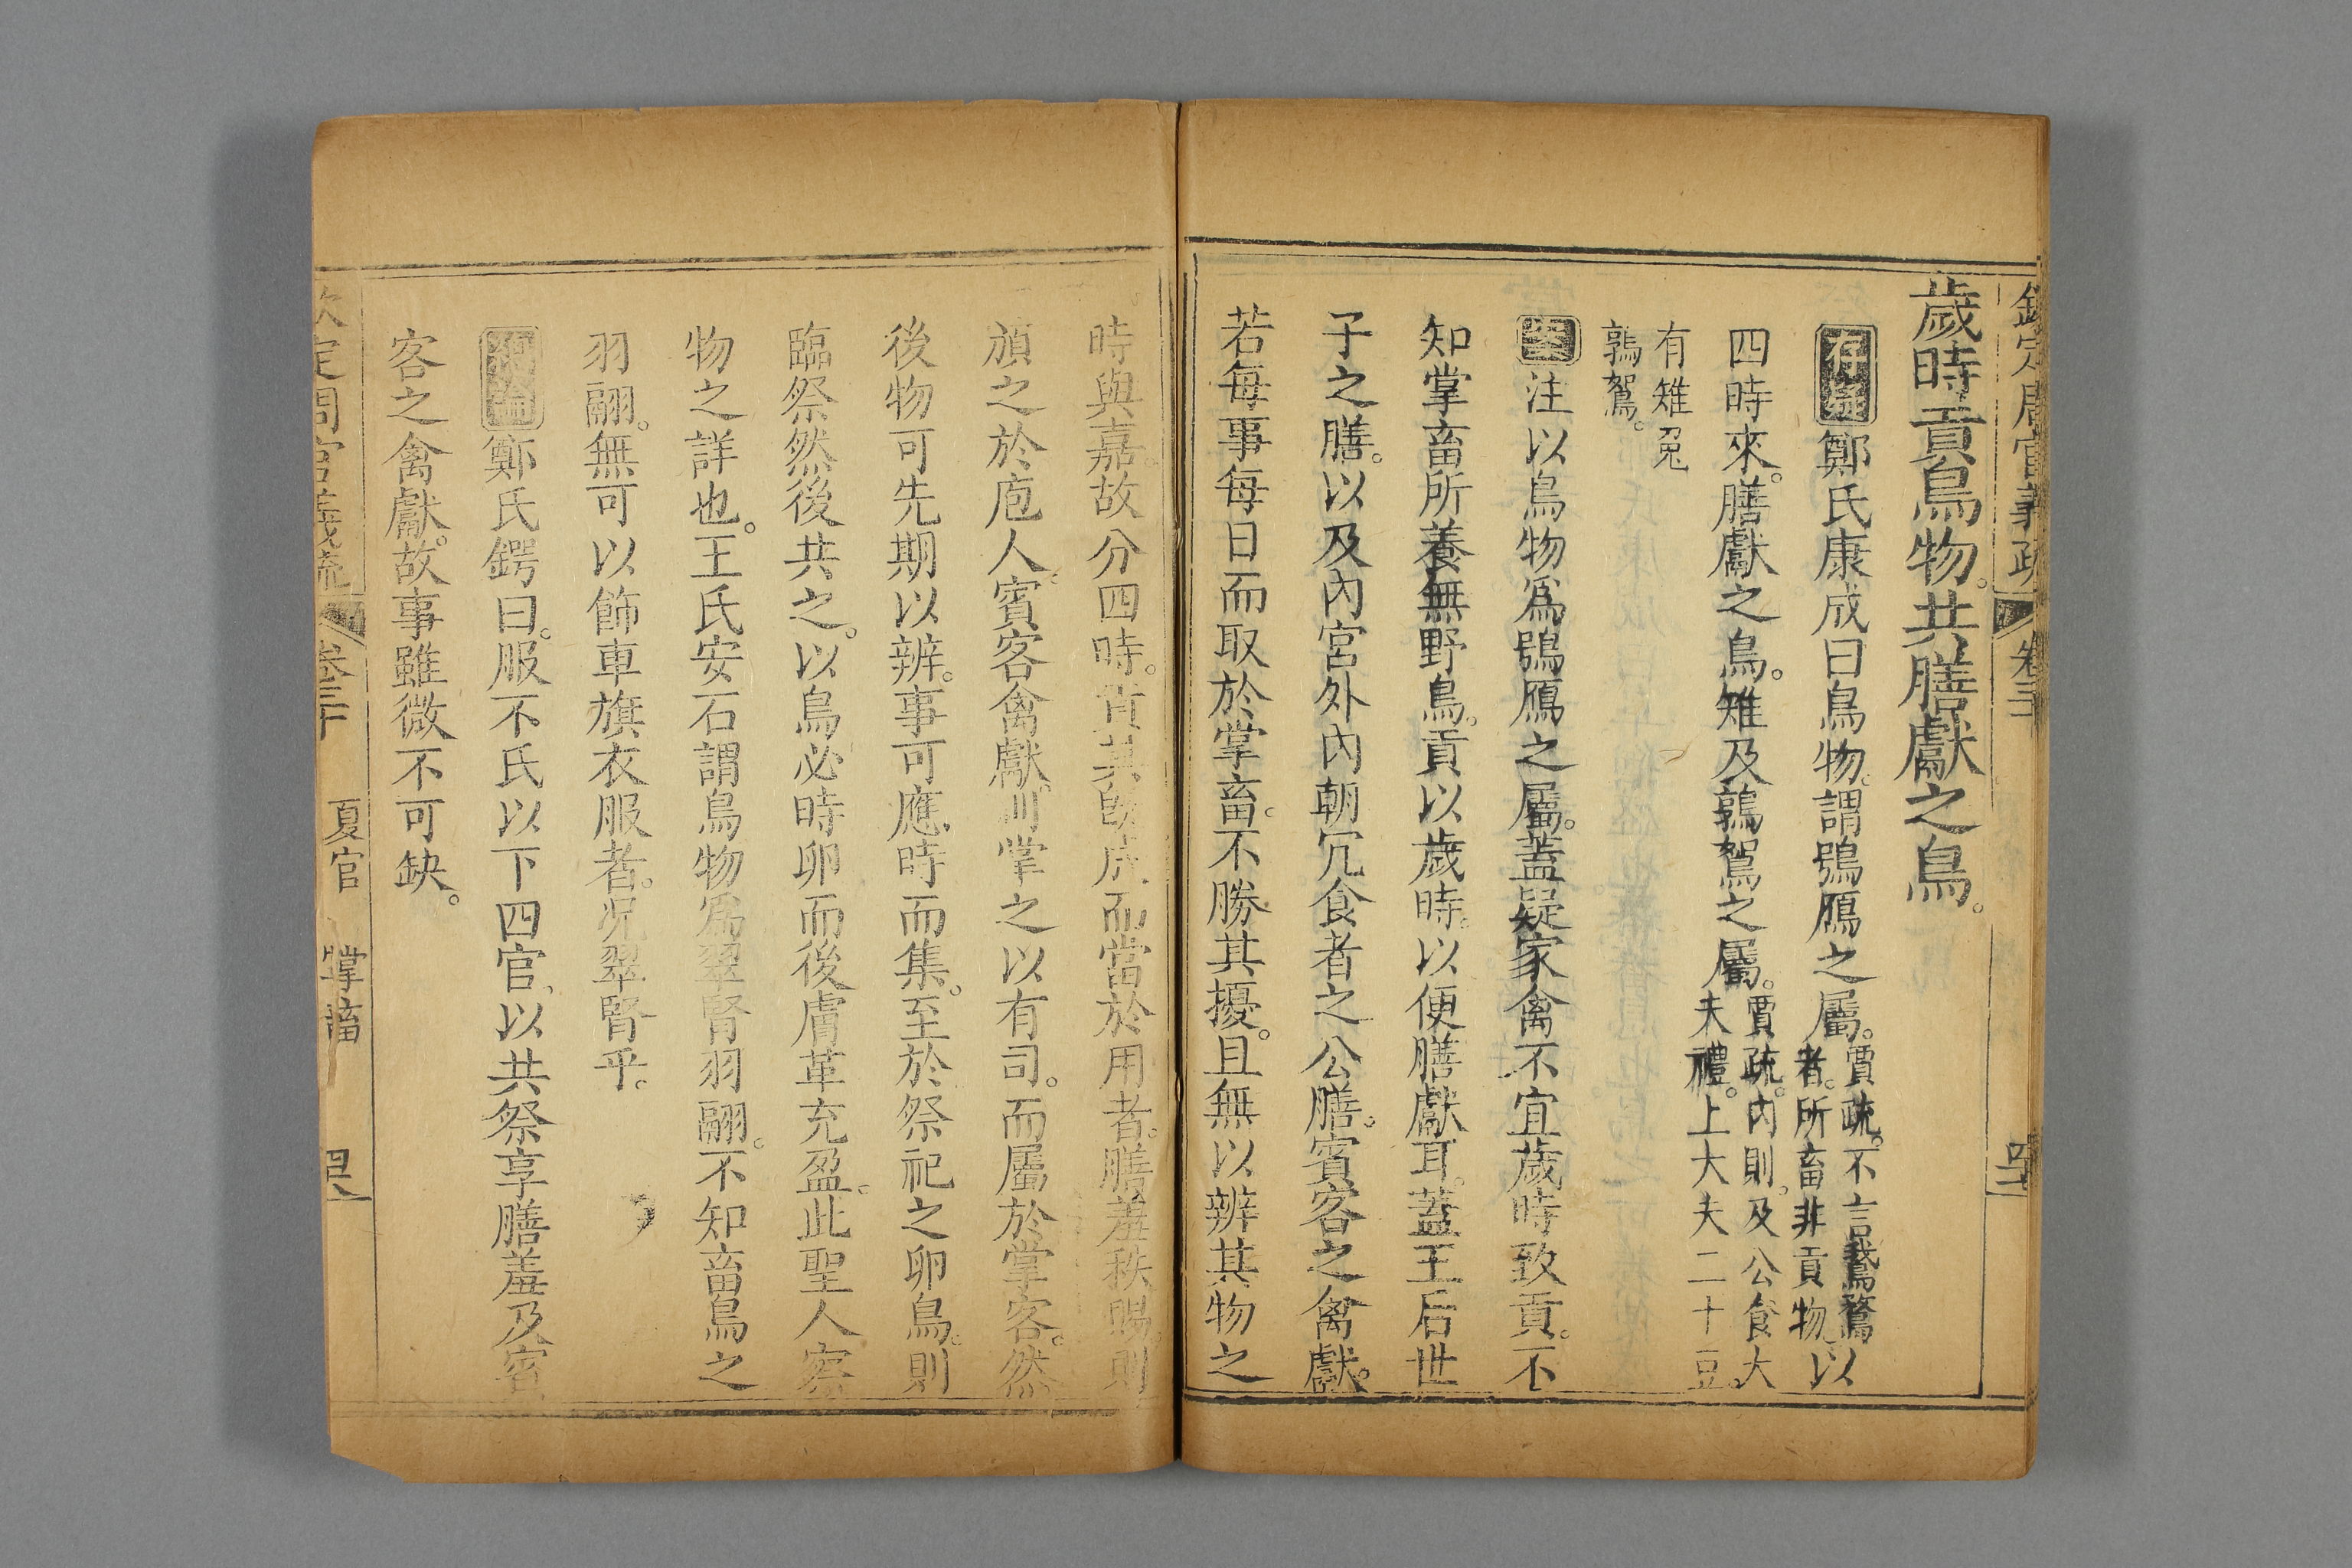 欽定周官義疏 卷三十
歲時貢鳥物。共膳獻之鳥。
存疑鄭氏康成曰鳥物。謂鴞鴈之屬。賈疏。不言鵞鶩者。所畜非貢物。以
四時來。膳獻之鳥。雉及鶉鴽之屬。賈疏。內則。及公食大夫禮。上大夫二十豆。
有雉兔鶉鴽。
案注以鳥物爲鴞鴈之屬。蓋疑家禽不宜歲時致貢。不
知掌畜所養無野鳥。貢以歲時。以便膳獻耳。蓋王后世
子之膳。以及內宮外內朝冗食者之公膳。賓客之禽獻。
若每事每日而取於掌畜。不勝其擾。且無以辨其物之
時與嘉。故分四時。貢其成而當於用者。膳羞秩賜。則
頒之於庖人。賓客禽獻。則掌之以有司。而屬於掌客。然
後物可先期以辨。事可應時而集。至於祭祀之卵鳥。則
臨祭然後共之。以鳥必時卵而後膚革充盈。此聖人察
物之詳也。王氏安石謂鳥物爲翠腎羽翮。不知畜鳥之
羽翮。無可以飾車旗衣服者。況翠腎乎。
總論鄭氏鍔曰。服不氏以下四官、以共祭享膳羞及賓
客之禽獻。故事雖微不可缺。
欽定周官義疏 卷三十 夏官 掌畜